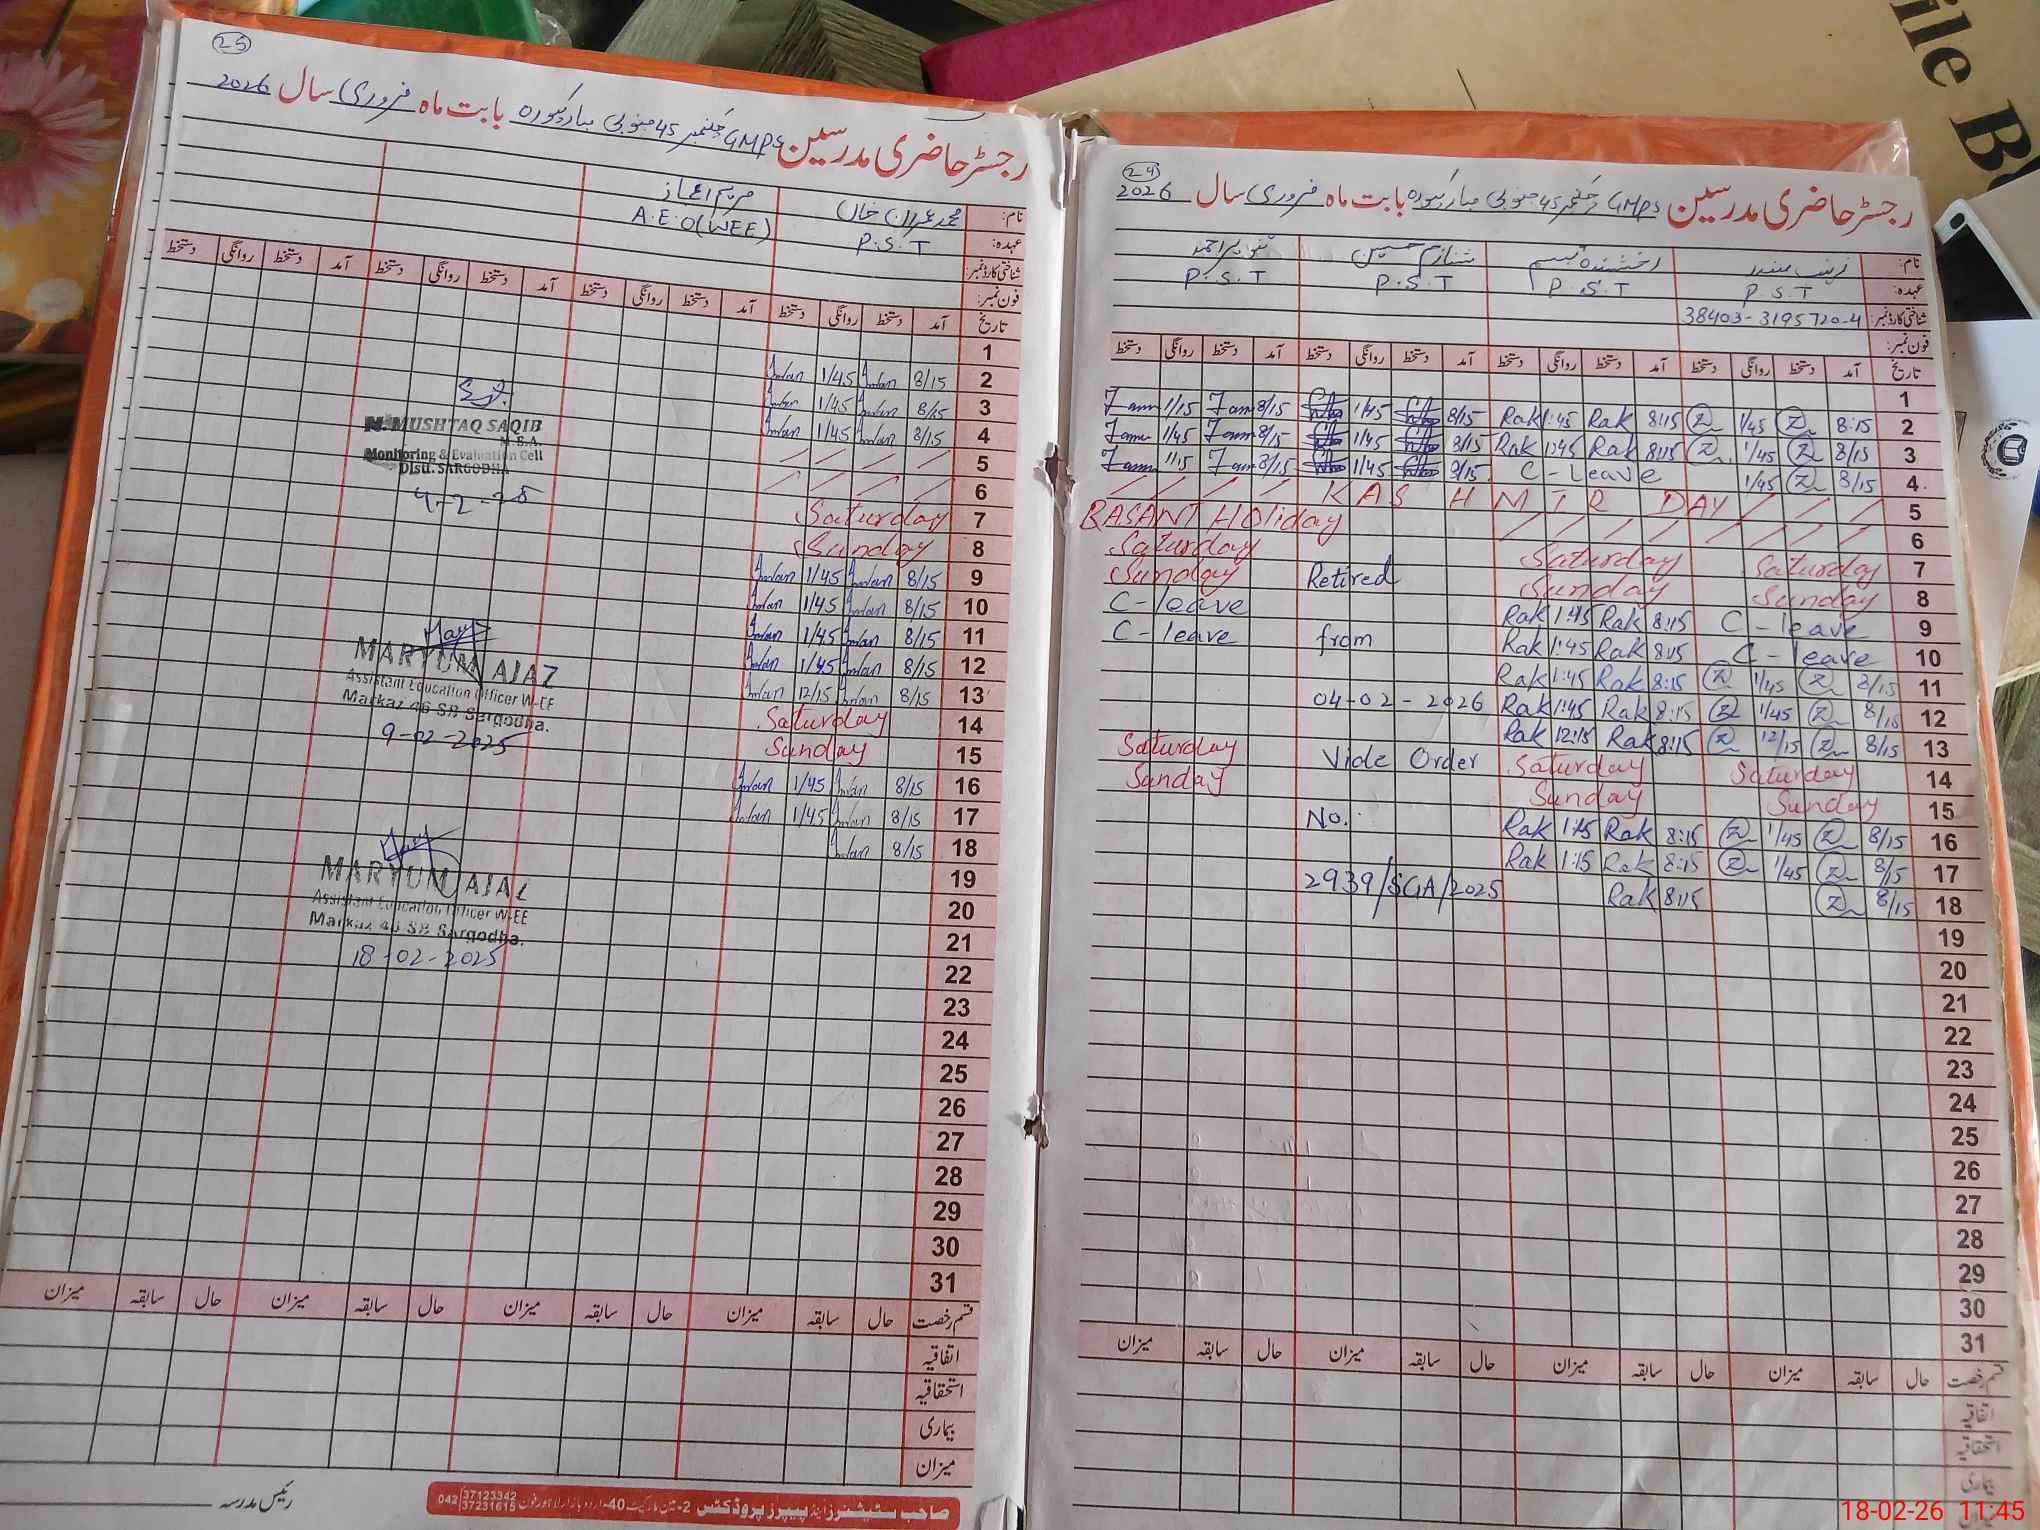 25
رجسٹر حاضری مدرسین GMPS چکنمبر 45 جنوبی مبارکپورہ بابت ماہ فروری سال 2026
نام: محمد عمران خان مریم اعجاز
عہدہ: P.S.T A.E.O(WEE)
شناختی کارڈ نمبر:
فون نمبر:
تاریخ آمد دستخط روانگی دستخط آمد دستخط روانگی دستخط آمد دستخط روانگی دستخط آمد دستخط روانگی دستخط
1
2 8/15 Imran 1/45 Imran
3 8/15 Imran 1/45 Imran
4 8/15 Imran 1/45 Imran
5
6
7 Saturday
8 Sunday
9 8/15 Imran 1/45 Imran
10 8/15 Imran 1/45 Imran
11 8/15 Imran 1/45 Imran
12 8/15 Imran 1/45 Imran
13 8/15 Imran 12/15 Imran
14 Saturday
15 Sunday
16 8/15 Imran 1/45 Imran
17 8/15 Imran 1/45 Imran
18 8/15 Imran
19
20
21
22
23
24
25
26
27
28
29
30
31
M. MUSHTAQ SAQIB
M.E.A.
Monitoring & Evaluation Cell
Distt. SARGODHA
MARYUM AJAZ
Assistant Education Officer W-EE
Markaz 46 SB Sargodha.
9-02-2025
MARYUM AJAZ
Assistant Education Officer W-EE
Markaz 46 SB Sargodha.
18-02-2025
قسم رخصت حال سابقہ میزان حال سابقہ میزان حال سابقہ میزان حال سابقہ میزان
اتفاقیہ
استحقاقیہ
بیماری
میزان
رئیس مدرسہ
صاحب سٹیشنرز اینڈ پیپرز پروڈکٹس 2-مین مارکیٹ 40-اردو بازار لاہور فون 042 37123342
37231615
24
رجسٹر حاضری مدرسین GMPS چکنمبر 45 جنوبی مبارکپورہ بابت ماہ فروری سال 2026
نام: زینب رخشندہ تبسم حسین تنویر احمد
عہدہ: P.S.T P.S.T P.S.T P.S.T
شناختی کارڈ نمبر: 38403-3195720-4
فون نمبر:
تاریخ آمد دستخط روانگی دستخط آمد دستخط روانگی دستخط آمد دستخط روانگی دستخط آمد دستخط روانگی دستخط
1
2 8:15 1/45 8:15 Rak 1:45 Rak 8/15 1/45 8/15 1/15
3 8/15 1/45 8:15 Rak 1:45 Rak 8/15 1/45 8/15 1/45
4 8/15 1/45 C-leave 8/15 1/45 8/15 1/15
5 KASHMIR DAY
6 BASANT Holiday
7 Saturday Saturday Saturday
8 Sunday Sunday Retired Sunday
9 C-leave 8:15 Rak 1:45 Rak C-leave
10 C-leave 8:15 Rak 1:45 Rak from C-leave
11 8/15 1/45 8:15 Rak 1:45 Rak
12 8/15 1/45 8:15 Rak 1:45 Rak 04-02-2026
13 8/15 12/15 8:15 Rak 12:15 Rak
14 Saturday Saturday Vide Order Saturday
15 Sunday Sunday Sunday
16 8/15 1/45 8:15 Rak Rak No.
17 8/15 1/45 8:15 Rak 1:15 Rak
18 8/15 8:15 Rak 2939/SGA/2025
19
20
21
22
23
24
25
26
27
28
29
30
31
قسم رخصت حال سابقہ میزان حال سابقہ میزان حال سابقہ میزان حال سابقہ میزان
اتفاقیہ
استحقاقیہ
بیماری
میزان
ile B
18-02-26 11:45